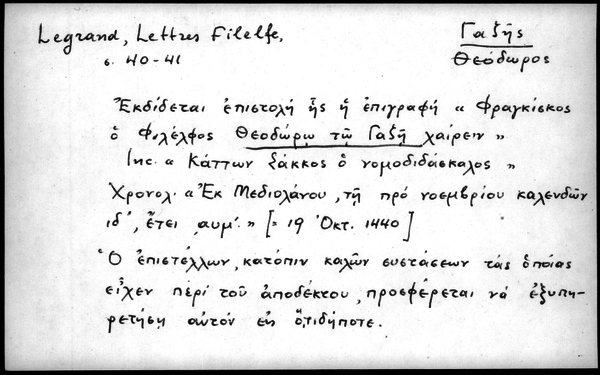 Legrand, Lettres Filelfe,
σ. 40-41
Γαζῆς
Θεόδωρος
Ἐκδίδεται ἐπιστολή ἧς ἡ ἐπιγραφή « Φραγκίσκος
ὁ Φιλέλφος Θεοδώρῳ τῷ Γαζῆ χαίρειν »
Inc. « Κάττων Σάκκος ὁ νομοδιδάσκαλος »
Χρονολ. « Ἐκ Μεδιολάνου, τῇ πρό νοεμβρίου καλενδῶν
ιδ΄, ἔτει ͵αυμ΄. » [= 19 Ὀκτ. 1440]
Ὁ ἐπιστέλλων, κατόπιν καλῶν συστάσεων τάς ὁποίας
εἶχεν περί τοῦ ἀποδέκτου, προσφέρεται νά ἐξυπη-
ρετήσῃ αὐτόν εἰς ὅ,τιδήποτε.